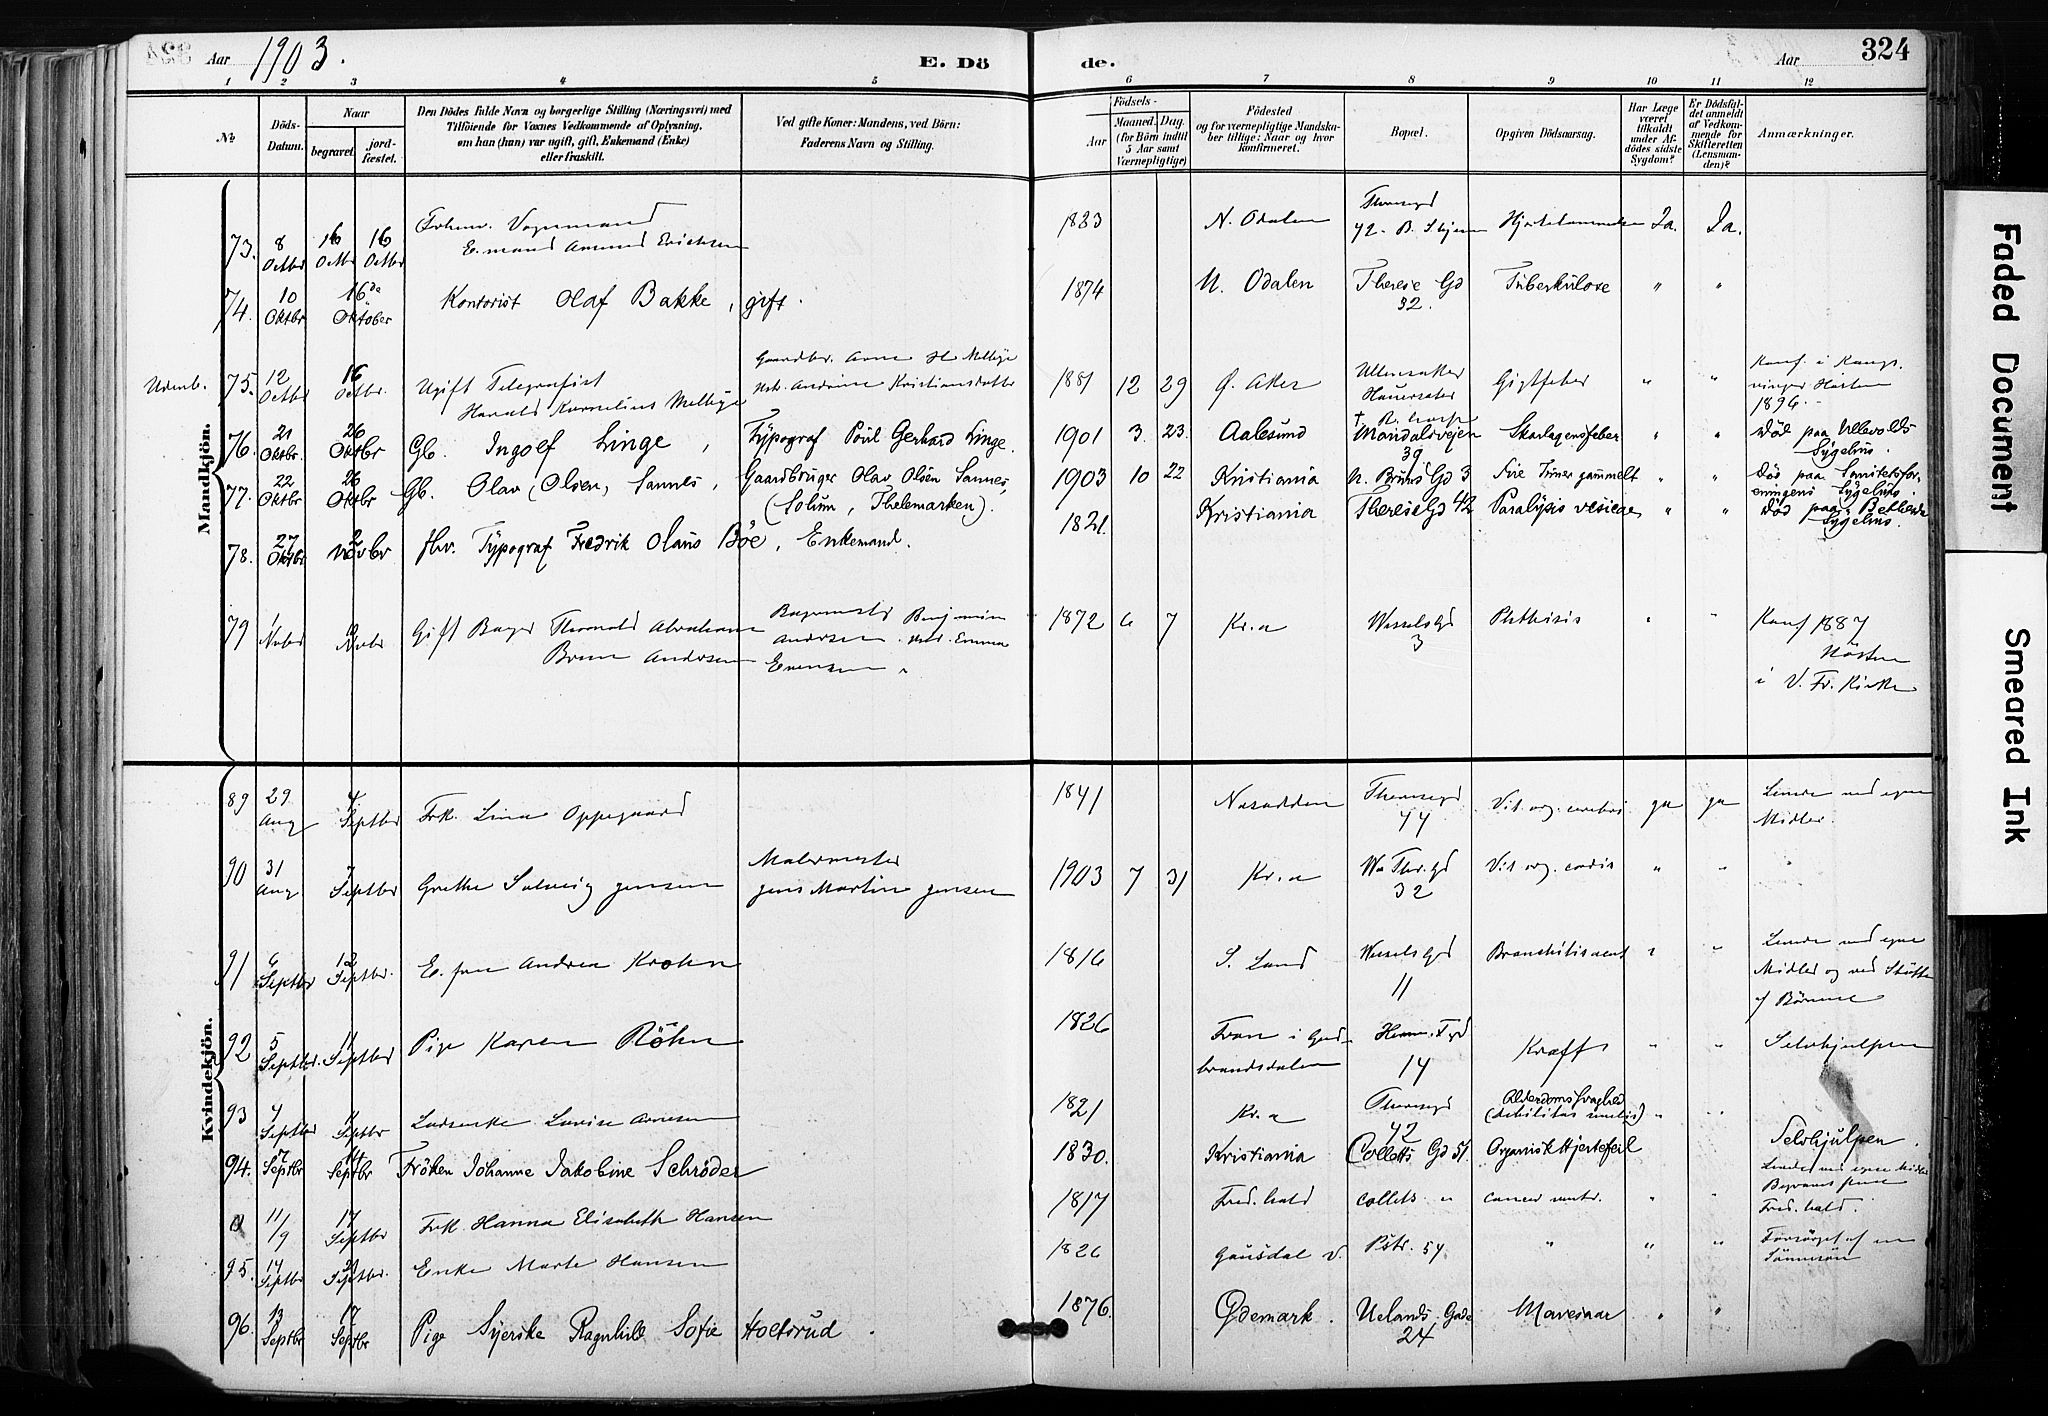 Aar 1903.
E. Dö
de.
Aar
324
1 2 3 4 5 6 7 8 9 10 11 12
No
Döds-Datum.
Naar
begravet.
jord-fæstet.
Den Dödes fulde Navn og borgerlige Stilling (Næringsvei) med
Tilföiende for Voxnes Vedkommende af Oplysning,
om han (hun) var ugift, gift, Enkemand (Enke)
eller fraskilt.
Ved gifte Koner: Mandens, ved Börn:
Faderens Navn og Stilling.
Födsels-
Aar
Maaned. Dag.
(for Börn indtil
5 Aar samt
Værnepligtige)
Födested
og for værnepligtige Mandska-
ber tillige: Naar og hvor
konfirmeret.
Bopæl.
Opgiven Dödsaarsag.
Har Læge
været
tilkaldt
under Af-
dödes sidste
Sygdom?
Er Dödsfal-
det anmeldt
af Vedkom-
mende for
Skifteretten
(Lensman-
den)?
Anmærkninger.
Mandkjön.
73. 8 Octbr 16 Octbr 16 Octbr
E.mand Amund Erichsen 1823 N. Odalen Theresegd 42 Ja. Ja.
74. 10 Oktbr 16de Oktober Kontorist Olaf Bakke, gift. 1874 N. Odalen Therese Gd 32. Tuberkulose " "
Udenb. 75. 12 Octbr 16 Octbr. Ugift Telegrafist
Harald Kornelius Melbye Gaardbr. Arne H. Melbye
Andrine Kristiansdatter 1881 12 29 Ø. Aker Ullensaker Gigtfeber " " Konf. i Kongs-
vinger Høsten
1896.
76. 21 Oktbr. 26 Oktbr Gb. Ingolf Linge, Typograf Poul Gerhard Linge. 1901 3. 23. Aalesund Mandalsvejen 39 Skarlagensfeber " " Död paa Ullevolds
Sygehus.
77. 22 Oktbr 26 Oktbr Gb. Olav (Olsen) Sannes, Gaardbruger Olav Olsen Sannes,
(Solum, Thelemarken). 1903 10 22 Kristiania N. Bruns Gd 3 Fire Timer gammelt " " Död paa Sanitetsfor-
eningens Sygehus.
78. 27 Oktbr 2 Novbr fhv. Typograf Fredrik Olaus Böe, Enkemand. 1821. Kristiania Therese Gd 42 Paralysis vesicae " " Död paa
Sygehus.
79 1 Novbr Novbr Gift Bager Thorvald Abraham
Andersen Bagermester Benjamin
Andersen Emma
Evensen 1872 6 7 Kr.a Wesselsgd 3 Phthisis " " Konf 1887
Høsten
i V. Fr. Kirke
Kvindekjön.
89 29 Aug 4 Septbr Frk. Lina Oppegaard 1841 Næsodden Theresegd 44 Vit. org. cerebri ja ja Levede ved egne
Midler.
90 31 Aug 7 Septbr Grethe Solveig Jensen Malermester
Jens Martin Jensen 1903 7 31 Kr.a 32 Vit. org. cordis " "
91 6 Septbr 12 Septbr. E.frue Andrea Krohn 1816 S. Land Wesselsgd 11 " " Levede ved egne
Midler og ved Støtte
af Børnene
92 5 Septbr. 11 Septbr Pige Karen Röhn 1826 Fron i Gud-
brandsdalen 14 Kræft " " Selvhjulpen
93 4 Septbr Septbr Louise 1821 Kr.a Theresegd 42 Alderdomssvaghed
(debilitas senilis) " "
94. 7 Septbr 14 Septbr Fröken Johanne Jakobine Schröder 1830. Kristiania Colletts Gd 51. Organisk Hjertefeil Selvhjulpen.
11/9 17 Septbr Frk. Hanna Elisabeth Hansen 1817 Fred.hald Collets " Cancer " " Levede ved egne Midler
Fred.hald.
95. 17 Septbr Septbr. Enke Marte Hansen 1826 Gausdal v. Pstr. 54 " " " Forsörget af en
Sönnesön
96. 13 Septbr 17 Septbr Pige Syerske Ragnhild Sofie Holtsrud. 1876. Ødemark. Uelands Gade 24 Mavesaar " "
Faded Document
Smeared Ink